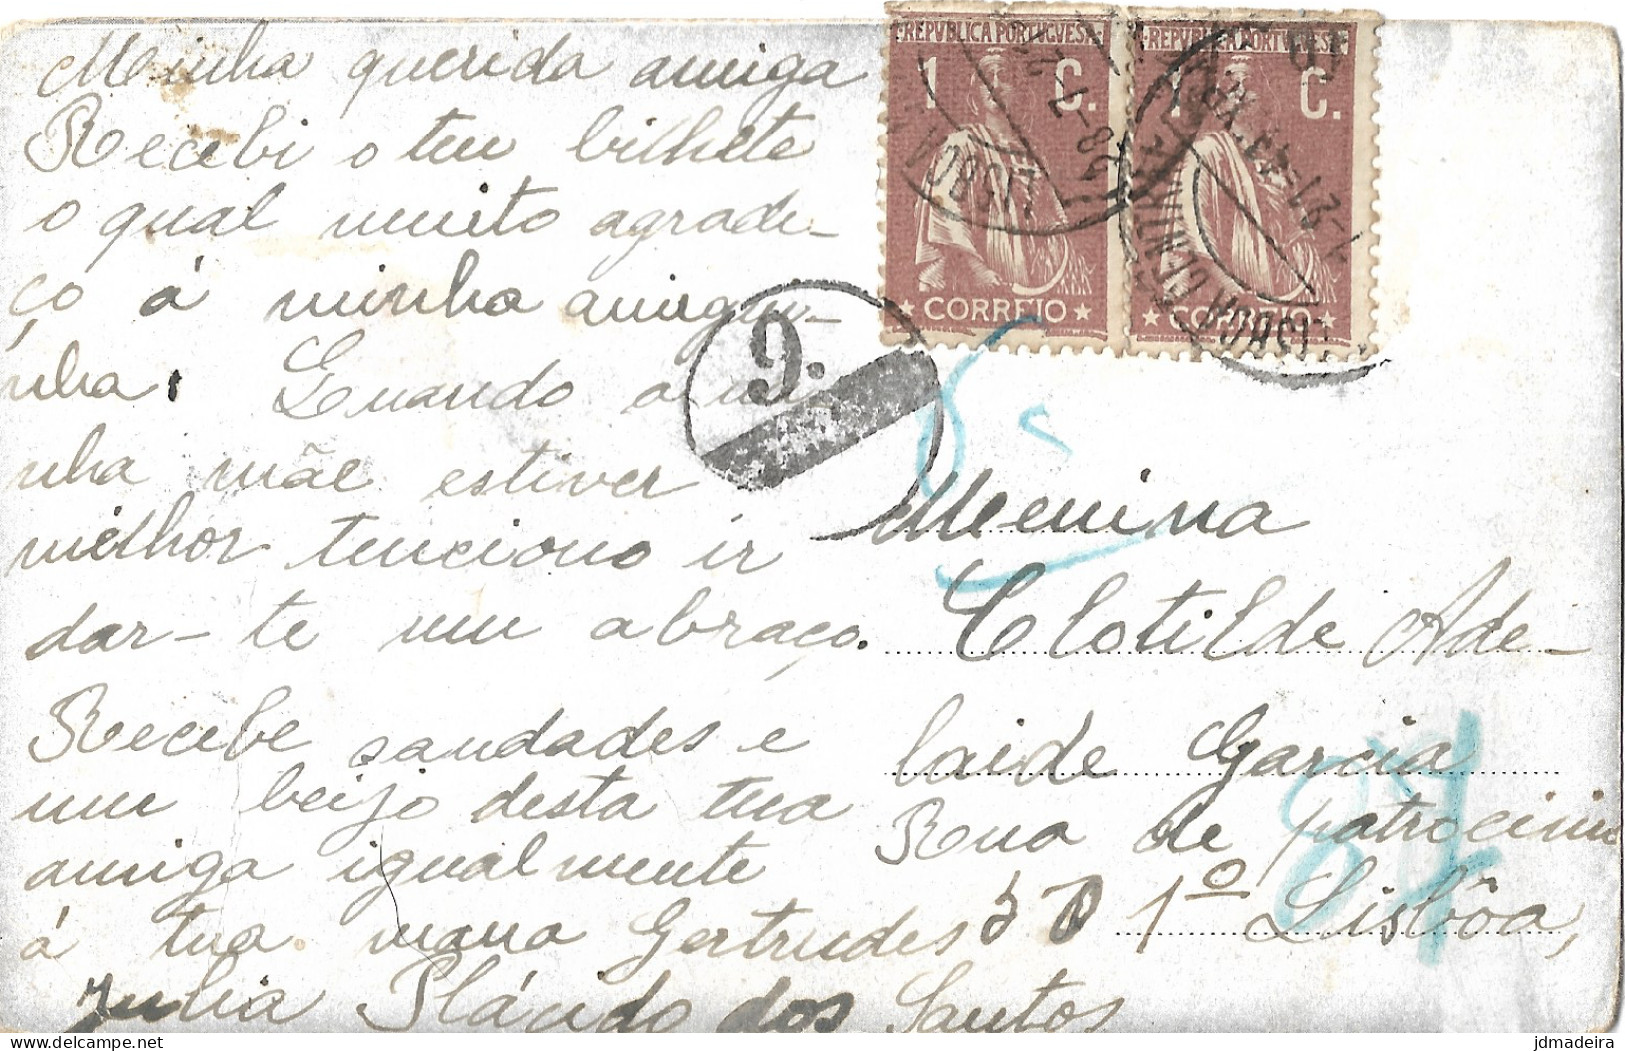 Minha querida amiga
Recebi o teu bilhete
o qual muito agrade-
ço á minha amigui-
nha. Quando a mi
nha mãe estiver
melhor tenciono ir
dar-te um abraço.
Recebe saudades e
um beijo desta tua
amiga igualmente
á tua mana Gertrudes
Julia Plácido dos Santos
REPVBLICA PORTVGVESA
1 C.
CORREIO
REPVBLICA PORTVGVESA
1 C.
CORREIO
LISBOA
LISBOA CENTRAL
9.
Menina
Clotilde Ade-
laide Garcia
Rua do patrocinio
1º Lisbôa,
© jdmadeira